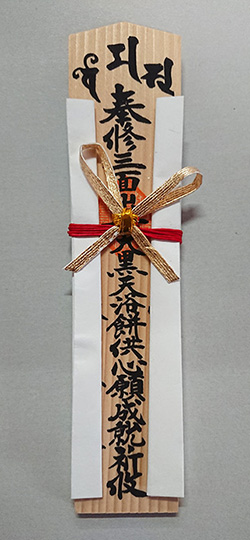 奉修三面大黒天浴餅供心願成就祈攸